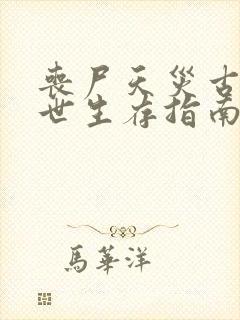 丧尸天災古
世生存指南
馬華洋